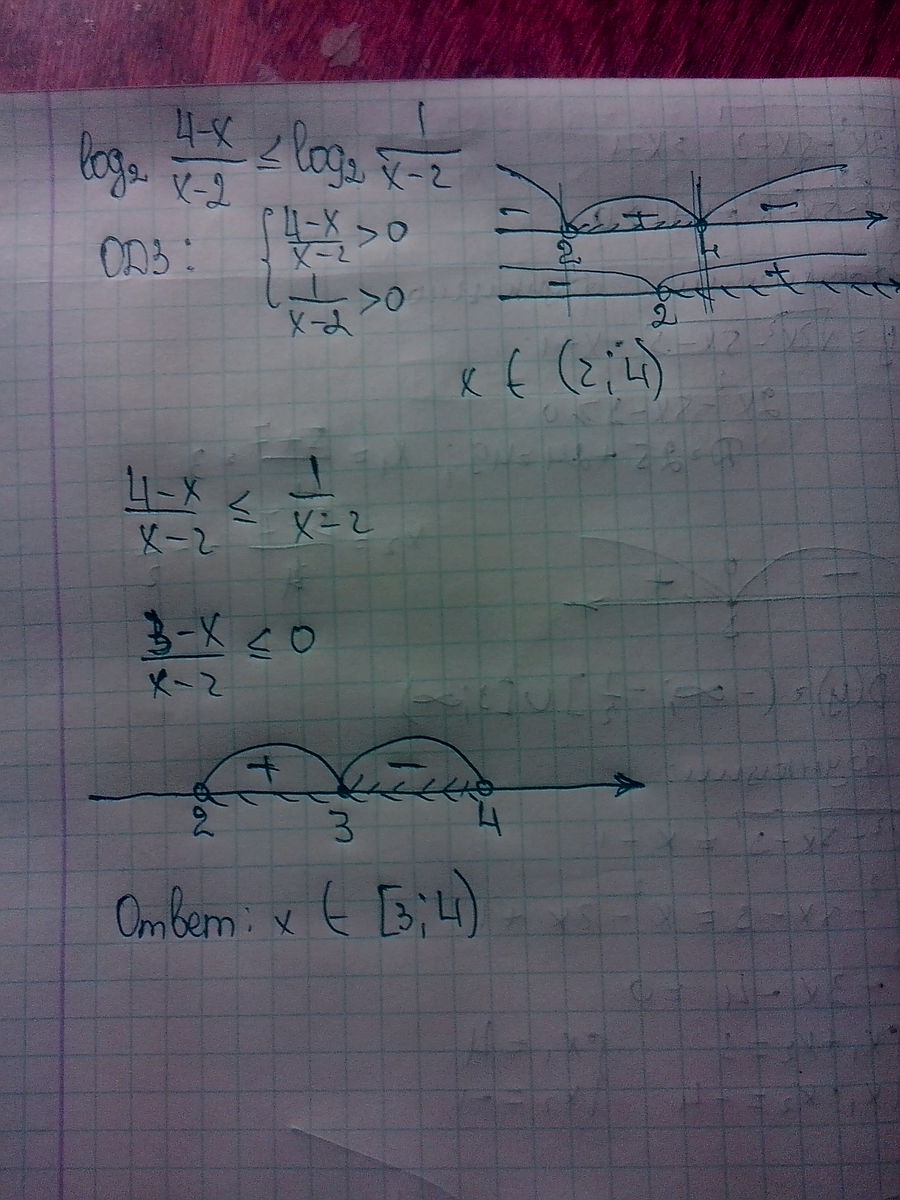 log₂ (4-x)/(x-2) ≤ log₂ 1/(x-2)
ОДЗ: { (4-x)/(x-2) > 0
1/(x-2) > 0
- + -
2 4
- +
2
x ∈ (2; 4)
(4-x)/(x-2) ≤ 1/(x-2)
(3-x)/(x-2) ≤ 0
+ -
2 3 4
Ответ: x ∈ [3; 4)